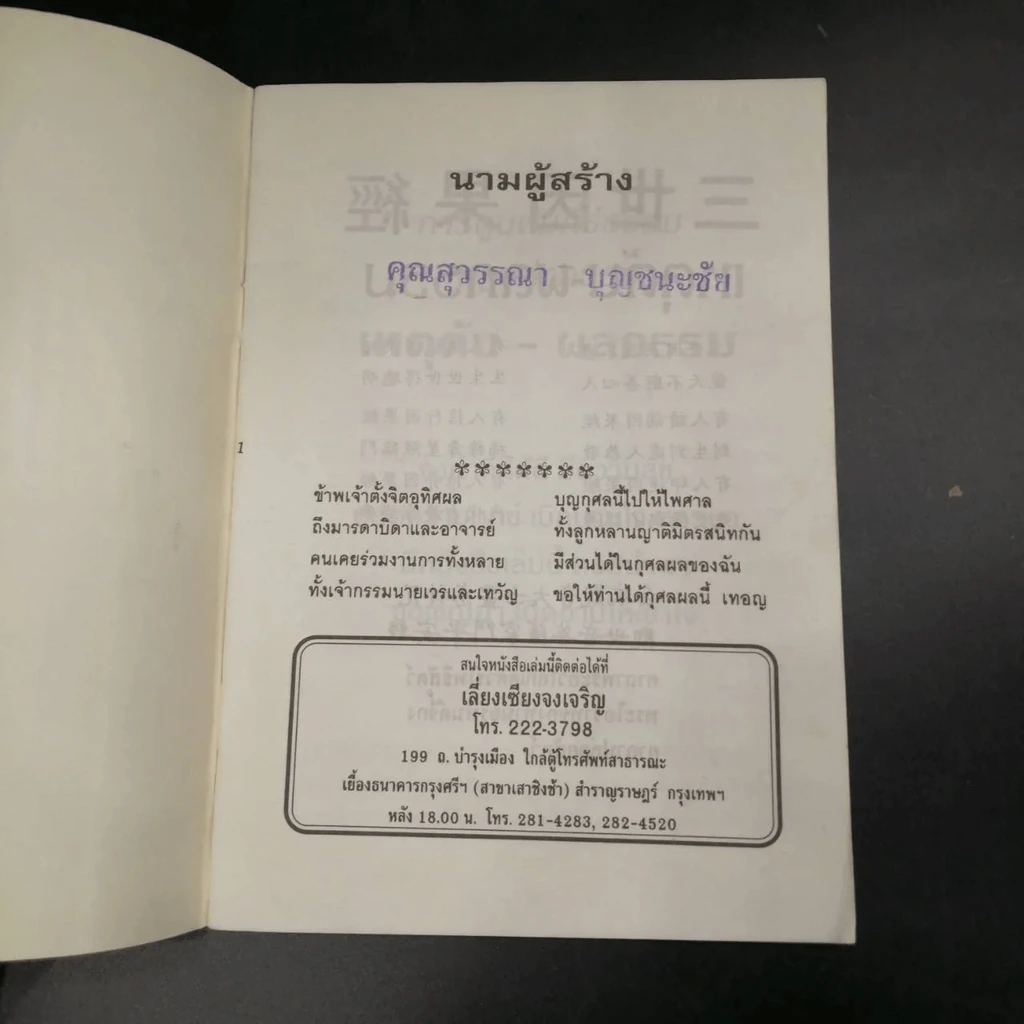 นามผู้สร้าง
คุณสุวรรณา บุญชนะชัย
1
✾✾✾✾✾✾✾
ข้าพเจ้าตั้งจิตอุทิศผล บุญกุศลนี้ไปให้ไพศาล
ถึงมารดาบิดาและอาจารย์ ทั้งลูกหลานญาติมิตรสนิทกัน
คนเคยร่วมงานการทั้งหลาย มีส่วนได้ในกุศลผลของฉัน
ทั้งเจ้ากรรมนายเวรและเทวัญ ขอให้ท่านได้กุศลผลนี้ เทอญ
สนใจหนังสือเล่มนี้ติดต่อได้ที่
เลี่ยงเซียงจงเจริญ
โทร. 222-3798
199 ถ.บำรุงเมือง ใกล้ตู้โทรศัพท์สาธารณะ
เยื้องธนาคารกรุงศรีฯ (สาขาเสาชิงช้า) สำราญราษฎร์ กรุงเทพฯ
หลัง 18.00 น. โทร. 281-4283, 282-4520